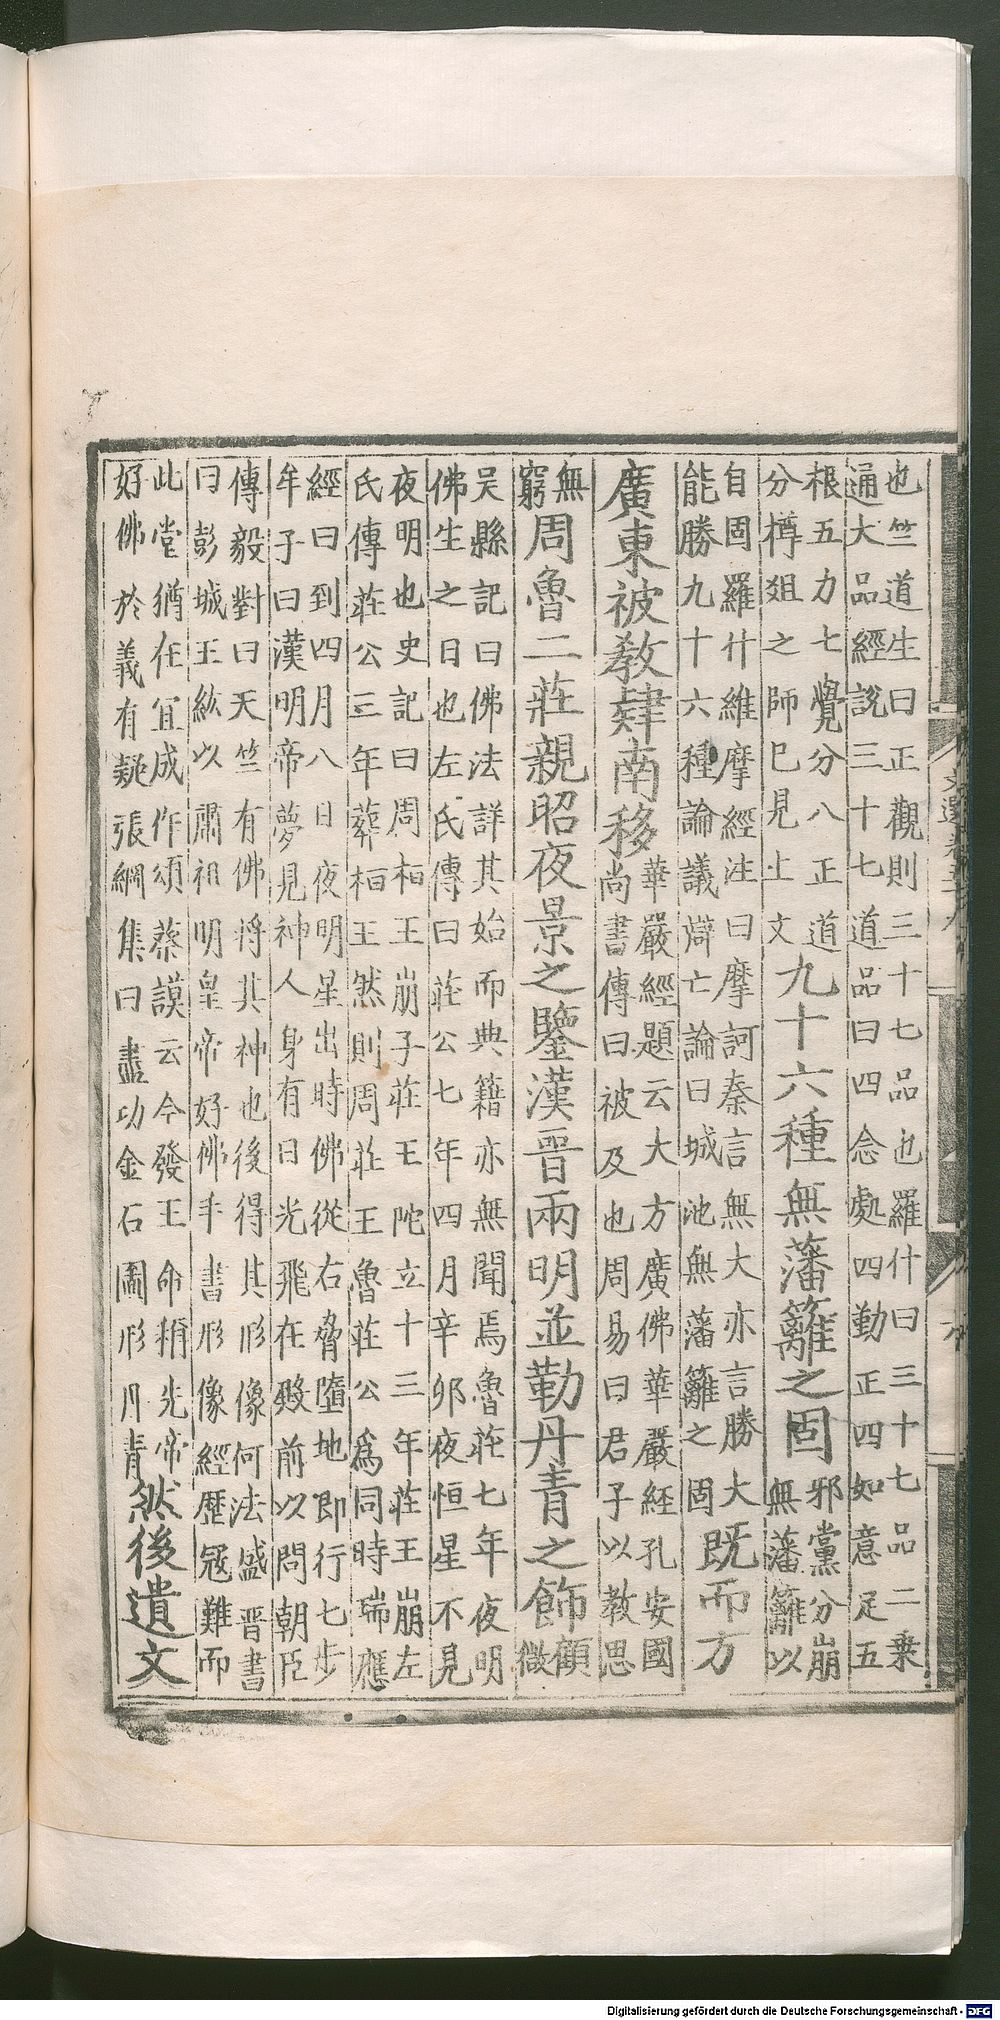 也竺道生曰正觀則三十七品也羅什曰三十七品二乗
通大品經說三十七道品曰四念處四勤正四如意足五
根五力七覺分八正道
分樽爼之師巳見上文
九十六種無藩籬之固
邪黨分崩
無藩籬以
自固羅什維摩經注曰摩訶秦言無大亦言勝大
能勝九十六種論議辯亡論曰城池無藩籬之固
既而方
廣東被教肄南移
華嚴經題云大方廣佛華嚴經孔安國
尚書傳曰被及也周易曰君子以教思
無
窮
周魯二莊親昭夜景之鑒漢晉兩明並勒丹青之飾
顧
微
吴縣記曰佛法詳其始而典籍亦無聞焉魯莊七年夜明
佛生之日也左氏傳曰莊公七年四月辛夘夜恒星不見
夜明也史記曰周桓王崩子莊王陀立十三年莊王崩左
氏傳莊公三年葬桓王然則周莊王魯莊公爲同時瑞應
經曰到四月八日夜明星出時佛從右脅墮地即行七步
牟子曰漢明帝夢見神人身有日光飛在殿前以問朝臣
傳毅對曰天竺有佛將其神也後得其形像何法盛晉書
曰彭城王紘以肅祖明皇帝好佛手書形像經歷冦難而
此堂猶在宜成作頌蔡謨云今發王命稱先帝
好佛於義有疑張綱集曰盡功金石圖形丹青
然後遺文
Digitalisierung gefördert durch die Deutsche Forschungsgemeinschaft - DFG